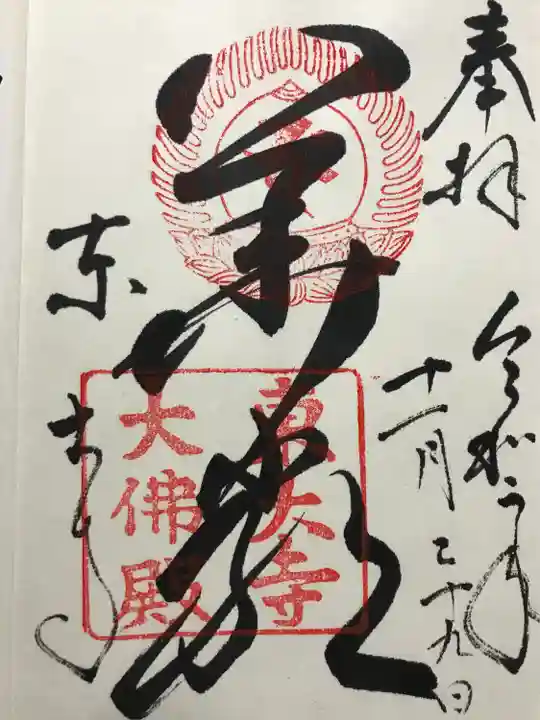 奉拝
令和
年
十一月二十九日
華厳
東大寺
東大寺
大佛殿